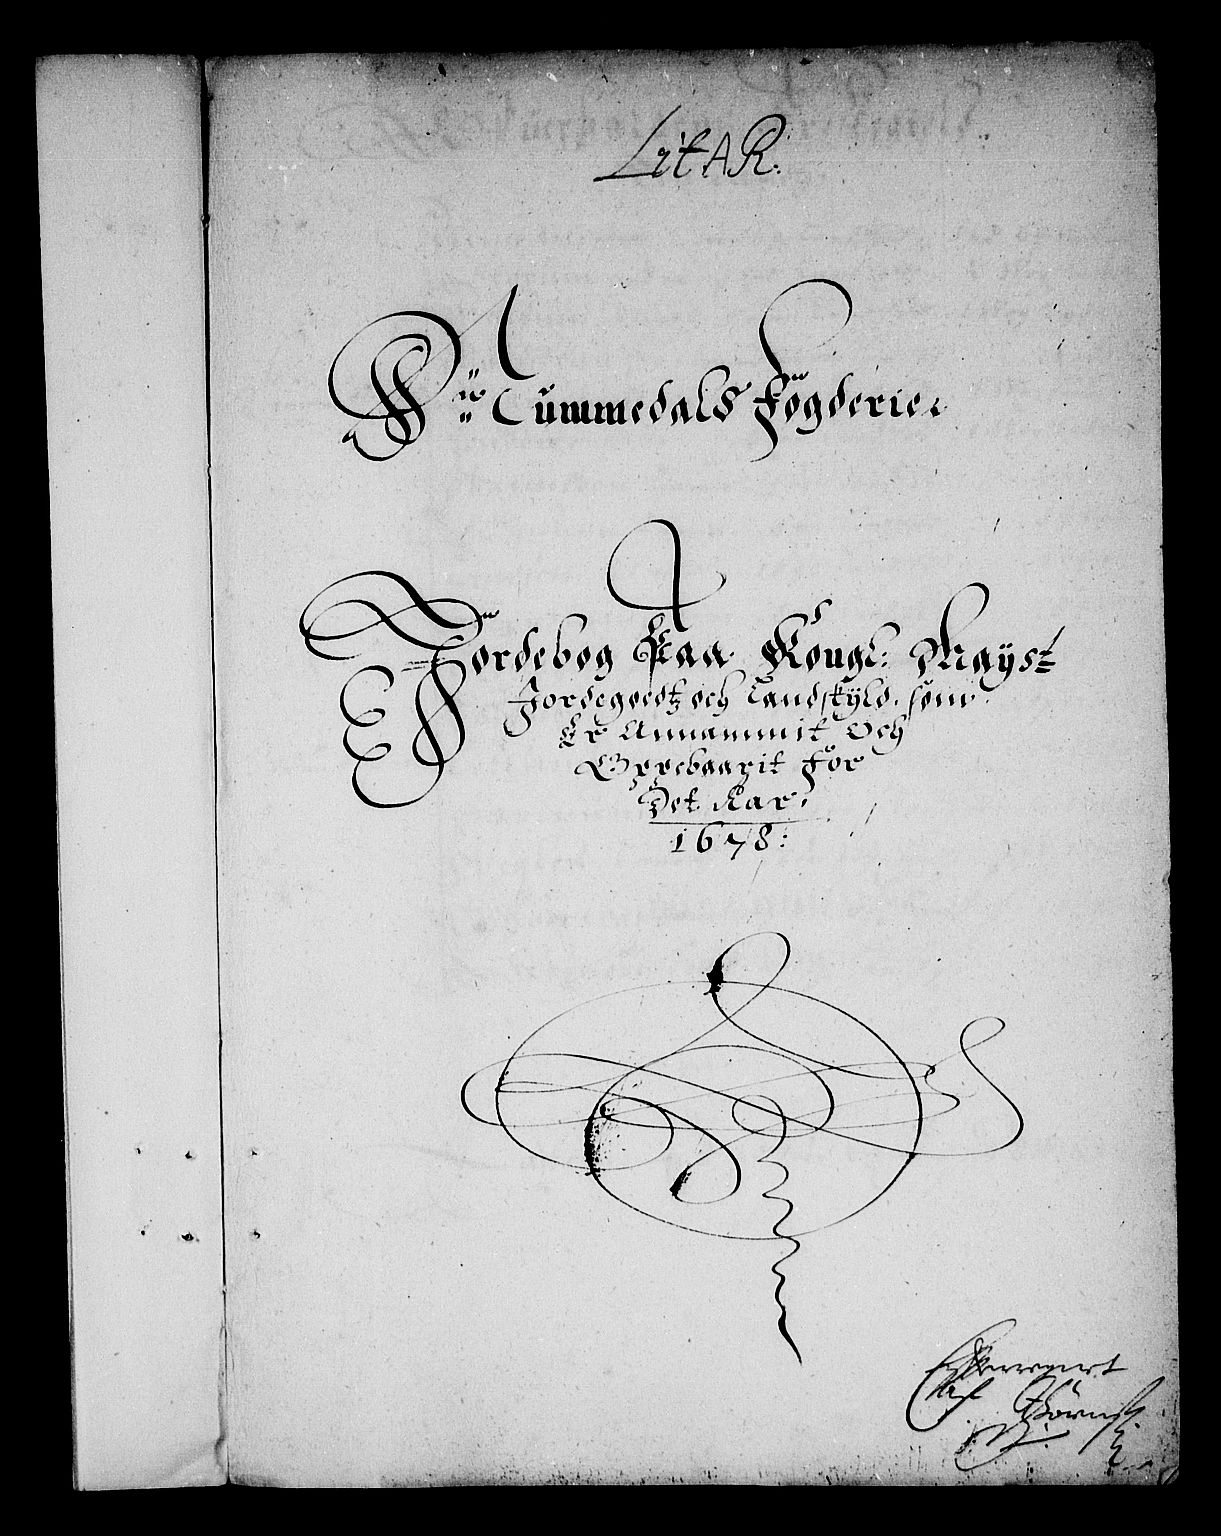 Lit A R.
Nummedals Fögderie.
Jordebog Paa Kongl: Mayst
Jordegodtz och Landskyld, som
Er Annammit Och
Oppebaarit For
Det Aar.
1678: